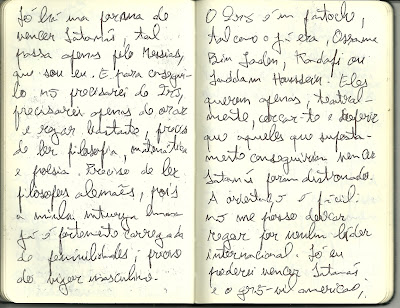 Só há uma forma de
vencer Satanás, tal
passa apenas pelo Messias,
que sou eu. E para consegui-
lo não precisarei do Irs,
precisarei apenas de orar
e regar bastante, preciso
de ler filosofia, matemática
e poesia. Preciso de ler
filósofos alemães, pois
a minha energia humana
já é fortemente carregada
de feminilidades; preciso
de vigor masculino.
O Irs é um fantoche,
tal como o já era, Ossama
Bin Laden, Kadafi ou
Saddam Houssein. Eles
querem apenas, teatral-
mente, cercar-te e dizer-te
que aqueles que suposta-
mente conseguiriam vencer
Satanás foram destronados.
A orientação é fácil:
não me posso deixar
regar por nenhum líder
internacional. Só eu
poderei vencer Satanás
e o americano,